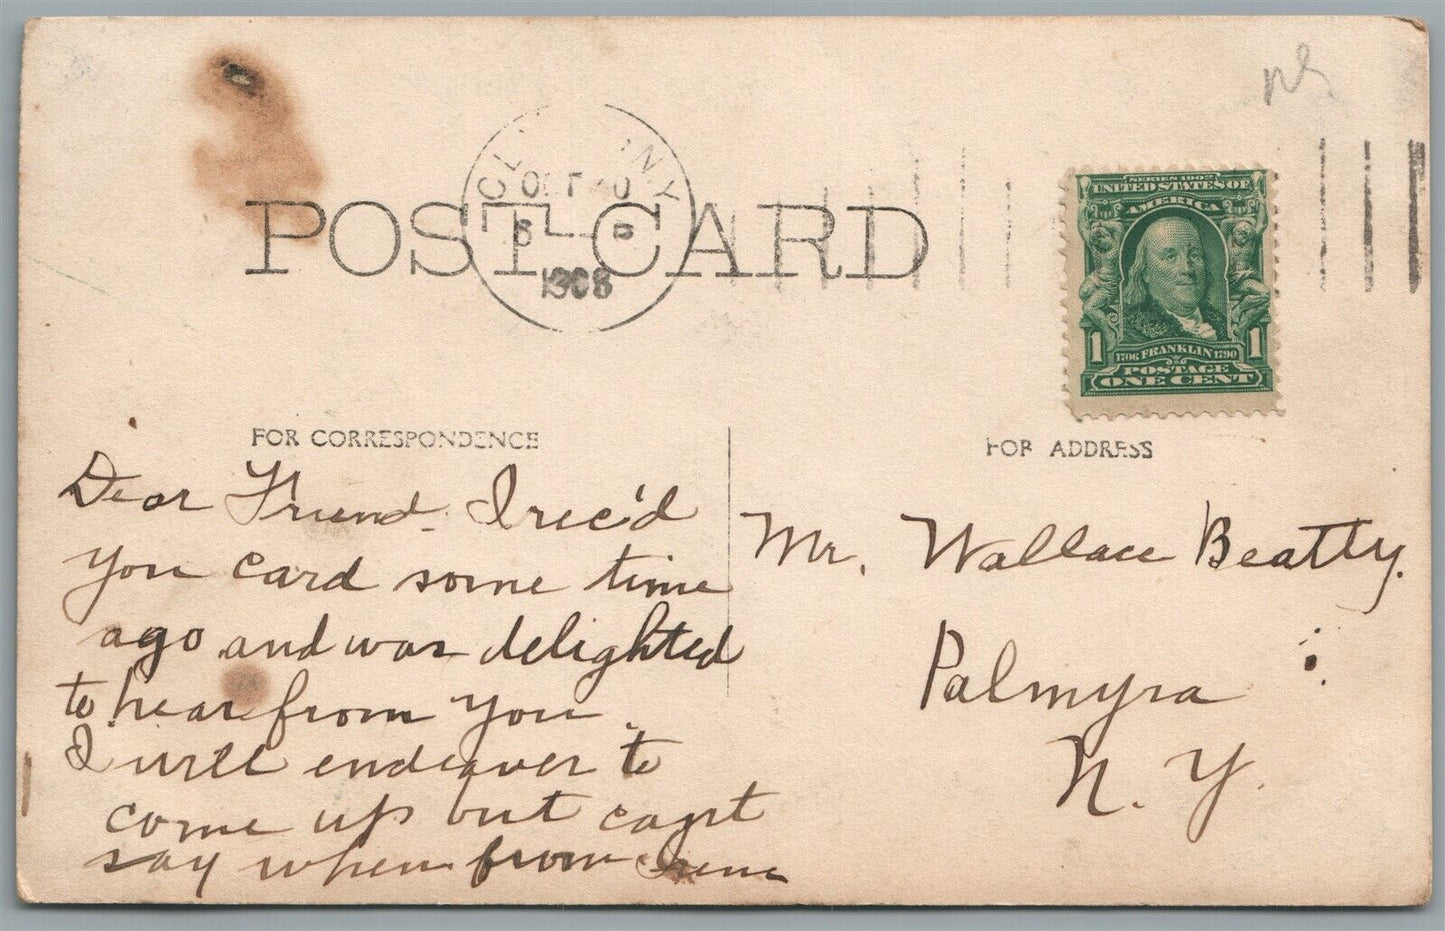 POST CARD
N.Y.
OCT
6 P
1908
SERIES 1902
UNITED STATES OF
AMERICA
1 1706 FRANKLIN 1790 1
POSTAGE
ONE CENT
FOR CORRESPONDENCE
Dear Friend. I rec'd
you card some time
ago and was delighted
to hear from you.
I will endeaver to
come up but can't
say when from Irene
FOR ADDRESS
Mr. Wallace Beatty.
Palmyra
N. Y.